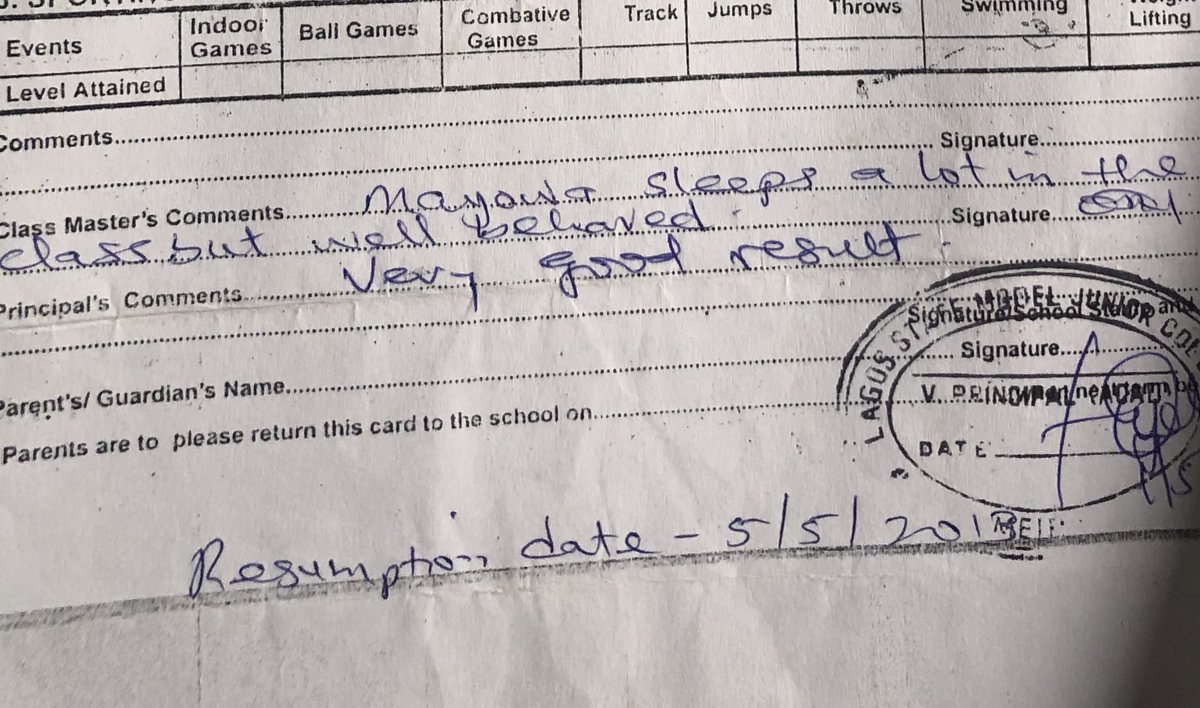 Events Indoor Games Ball Games Combative Games Track Jumps Throws Swimming Lifting
Level Attained
Comments
Signature
Class Master's Comments Mayowa sleeps a lot in the
class but well behaved. Signature
Principal's Comments Very good result.
Signature/School Stamp and
Signature
LAGOS STATE MODEL JUNIOR COL
V. PRINCIPAL
DATE
Parent's/ Guardian's Name
Parents are to please return this card to the school on
Resumption date - 5/5/2013